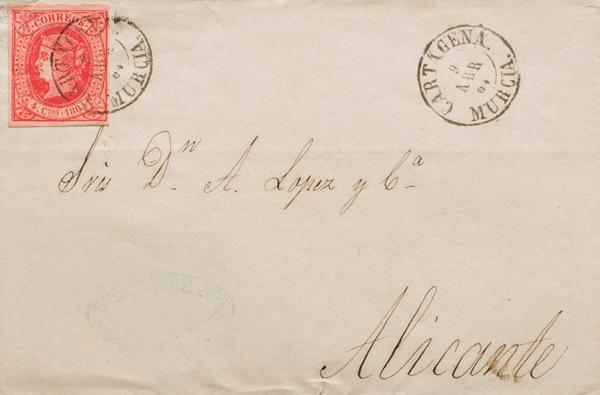 CORREOS
4 Ctos. 186
MURCIA.
CARTAGENA.
9
ABR
64
MURCIA.
Sres Dn A. Lopez y Ca
Alicante